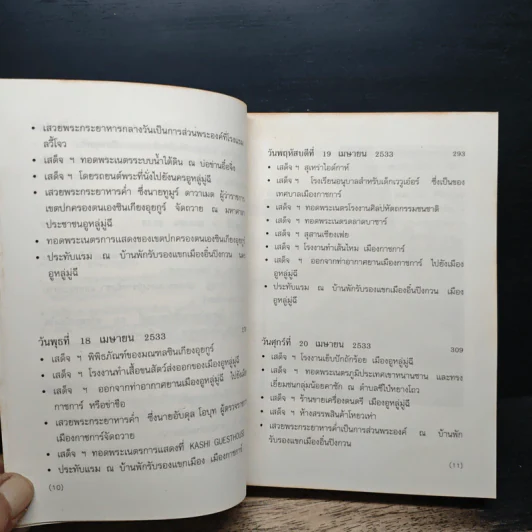 เสวยพระกระยาหารกลางวันเป็นการส่วนพระองค์ที่โรงแรม
• เสด็จ ฯ ทอดพระเนตรระบบน้ำใต้ดิน ณ
• เสด็จ ฯ โดยรถยนต์พระที่นั่งไปยังนครอูหลู่มู่ฉี
• เสวยพระกระยาหารค่ำ ซึ่งนายทูมูร์ ดาวาเมต ผู้ว่าราชการ
เขตปกครองตนเองซินเกียงอุยกูร์ จัดถวาย ณ มหาศาลา
ประชาชนอูหลู่มู่ฉี
• ทอดพระเนตรการแสดงของเขตปกครองตนเองซินเกียงอุยกูร์
• ประทับแรม ณ บ้านพักรับรองแขกเมืองอื่นปิงกวน
อูหลู่มู่ฉี
วันพุธที่ 18 เมษายน 2533
• เสด็จ ฯ พิพิธภัณฑ์ของมณฑลซินเกียงอุยกูร์
• เสด็จ ฯ โรงงานทำเสื้อขนสัตว์ส่งออกของเมืองอูหลู่มู่ฉี
• เสด็จ ฯ ออกจากท่าอากาศยานเมืองอูหลู่มู่ฉี ไปยังเมือง
กาชการ์ หรือข่าชือ
• เสวยพระกระยาหารค่ำ ซึ่งนายอับดุล โอบุท ผู้ตรวจราชการ
เมืองกาชการ์จัดถวาย
• เสด็จ ฯ ทอดพระเนตรการแสดงที่ KASHI GUESTHOUSE
• ประทับแรม ณ บ้านพักรับรองแขกเมือง เมืองกาชการ์
(10)
วันพฤหัสบดีที่ 19 เมษายน 2533 293
• เสด็จ ฯ สุเหร่าไอด์การ์
• เสด็จ ฯ โรงเรียนอนุบาลสำหรับเด็กเวูเอ๋อร์ ซึ่งเป็นของ
เทศบาลเมืองกาชการ์
• เสด็จ ฯ ทอดพระเนตรโรงงานศิลปหัตถกรรมชนชาติ
• เสด็จ ฯ ทอดพระเนตรตลาดบาซาร์
• เสด็จ ฯ สุสานเซียงเฟย
• เสด็จ ฯ โรงงานทำเส้นไหม เมืองกาชการ์
• เสด็จ ฯ ออกจากท่าอากาศยานเมืองกาชการ์ ไปยังเมือง
อูหลู่มู่ฉี
• ประทับแรม ณ บ้านพักรับรองแขกเมืองอื่นปิงกวน เมือง
อูหลู่มู่ฉี
วันศุกร์ที่ 20 เมษายน 2533 309
• เสด็จ ฯ โรงงานเย็บปักถักร้อย เมืองอูหลู่มู่ฉี
• เสด็จ ฯ ทอดพระเนตรภูมิประเทศเขาหนานซาน และทรง
เยี่ยมชนกลุ่มน้อยคาซัก ณ ตำบลซีไป๋หยางโกว
• เสด็จ ฯ ร้านขายเครื่องดนตรี เมืองอูหลู่มู่ฉี
• เสด็จ ฯ ห้างสรรพสินค้าโหยวเห่า
• เสวยพระกระยาหารค่ำเป็นการส่วนพระองค์ ณ บ้านพัก
รับรองแขกเมืองอื่นปิงกวน
(11)